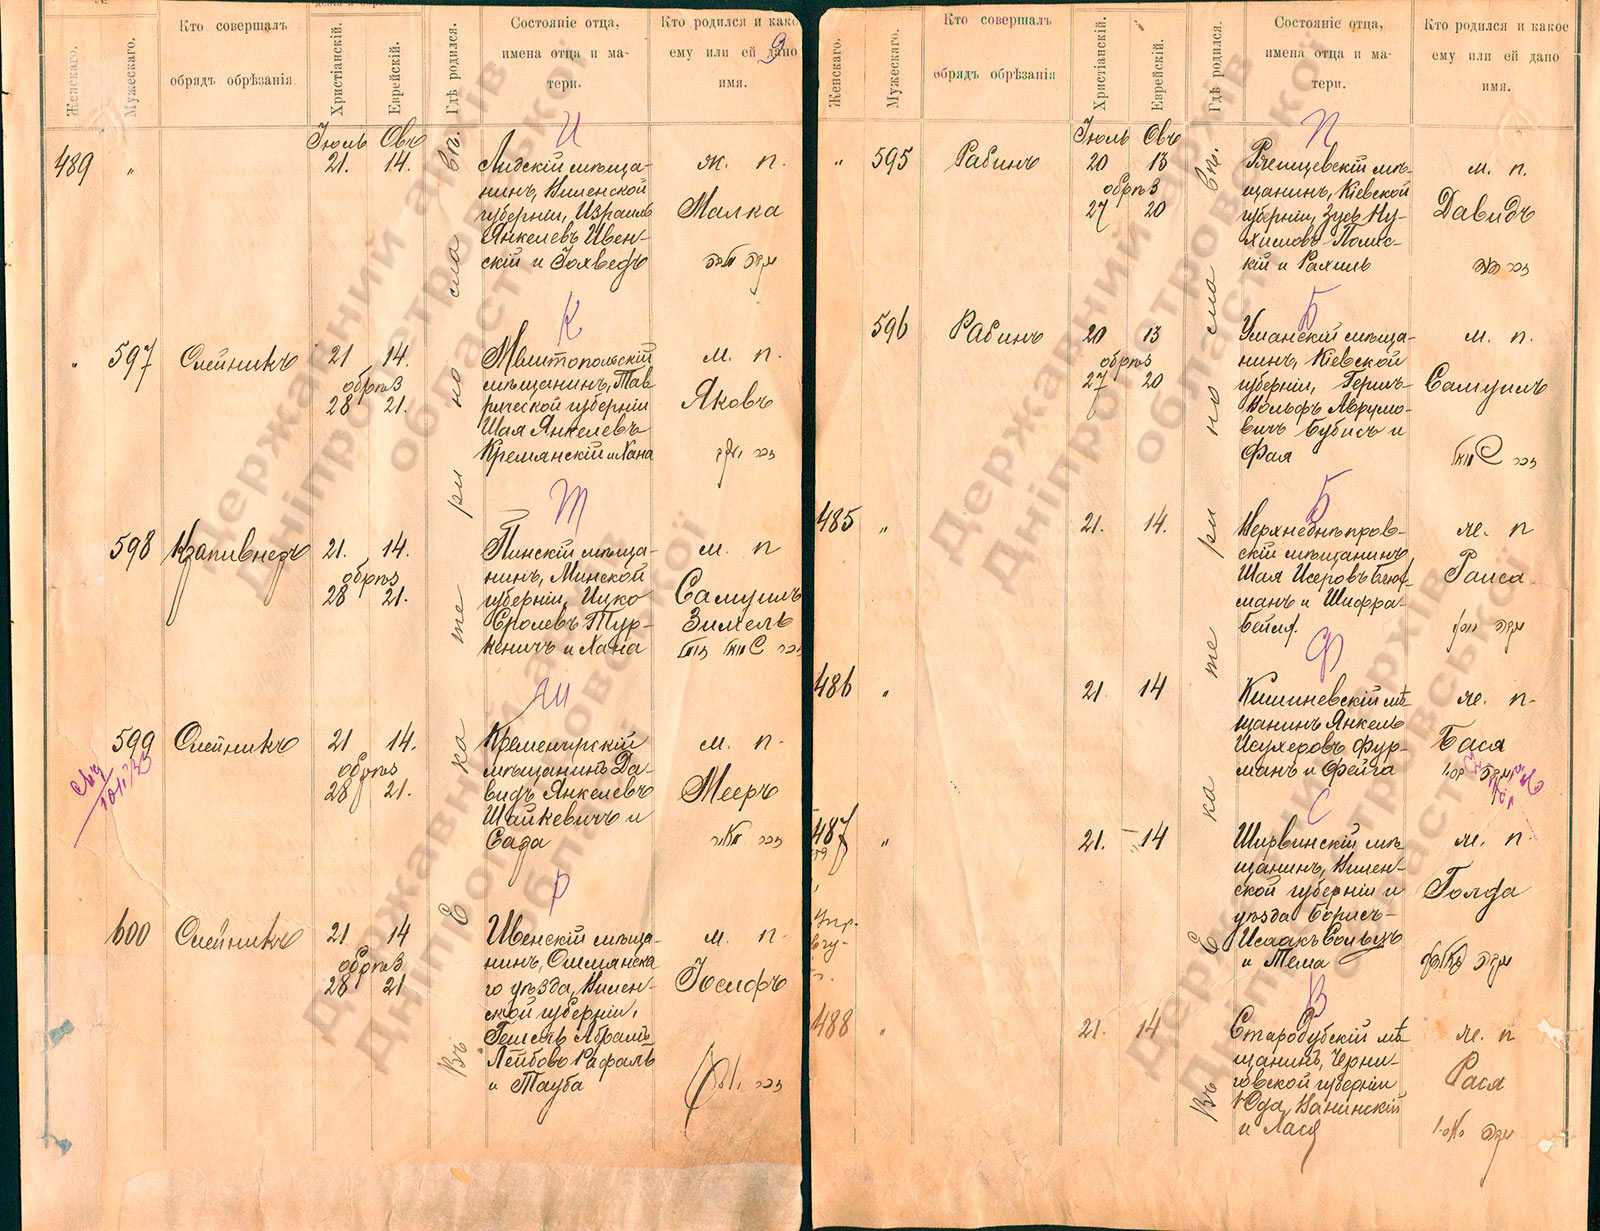 Женскаго.
Мужескаго.
Кто совершалъ
обрядъ обрѣзанія
Христіанскій.
Еврейскій.
Гдѣ родился.
Состояніе отца,
имена отца и ма-
тери.
Кто родился и како
ему или ей дано
имя.
9
Въ Екатеринославѣ.
И
Іюль Овъ
489 " 21. 14.
Лидскій мѣща-
нинъ, Виленской
губерніи, Израиль
Янкелевъ Ивен-
скій и Іохведъ
ж. п.
Малка
К
" 597 Олейникъ
21 14.
обрѣз
28 21.
Мелитопольскій
мѣщанинъ, Тав-
рической губерніи
Шая Янкелевъ
Кремянскій и Хана
м. п.
Яковъ
Т
598 Крапивнеръ
21. 14.
обрѣз
28 21.
Пинскій мѣща-
нинъ, Минской
губерніи, Ицко
Сролевъ Тур-
кеничъ и Хана
м. п
Самуилъ
Зимхель
Ш
599 Олейникъ
21 14.
обрѣз
28 21.
Кременчугскій
мѣщанинъ Да-
видъ Янкелевъ
Шайкевичъ и
Сада
м. п.
Мееръ
Р
600 Олейникъ
21 14
обрѣз
28 21
Ивенскій мѣща-
нинъ, Ошмянска
го уѣзда, Вилен-
ской губерніи,
Гешель Абрамъ
Лейбовъ Рафалъ
и Тауба
м. п.
Іосифъ
Женскаго.
Мужескаго.
Кто совершалъ
обрядъ обрѣзанія
Христіанскій.
Еврейскій.
Гдѣ родился.
Состояніе отца,
имена отца и ма-
тери.
Кто родился и какое
ему или ей дано
имя.
Въ Екатеринославѣ.
П
Іюль Овъ
" 595 Рабинъ
20 13
обрѣз
27 20
Ржищевскій мѣ-
щанинъ, Кіевской
губерніи, Зусь Ну-
химовъ Полис-
кій и Рахиль
м. п.
Давидъ
Б
596 Рабинъ
20 13
обрѣз
27 20
Уманскій мѣща-
нинъ, Кіевской
губерніи, Гершъ-
Вольфъ Аврумо-
вичъ Бубисъ и
Фая
м. п.
Самуилъ
Б
485 " 21. 14.
Верхнеднѣпров-
скій мѣщанинъ,
Шая Исеровъ
манъ и Шифра-
бейля.
же. п
Раиса
Ф
486 " 21. 14
Кишиневскій мѣ-
щанинъ Янкель
Исухеровъ Фур-
манъ и Фейга
же. п.
Бася
С
487 " 21. 14
Ширвинскій мѣ-
щанинъ, Вилен-
ской губерніи и
уѣзда Борисъ-
Исаакъ Сольцъ
и Тема
же. п.
Голда
В
488 " 21. 14
Стародубскій мѣ-
щанинъ, Черни-
говской губерніи
Юда Ванинскій
и Лася
же. п
Рася
Державний архів
Дніпропетровської
області